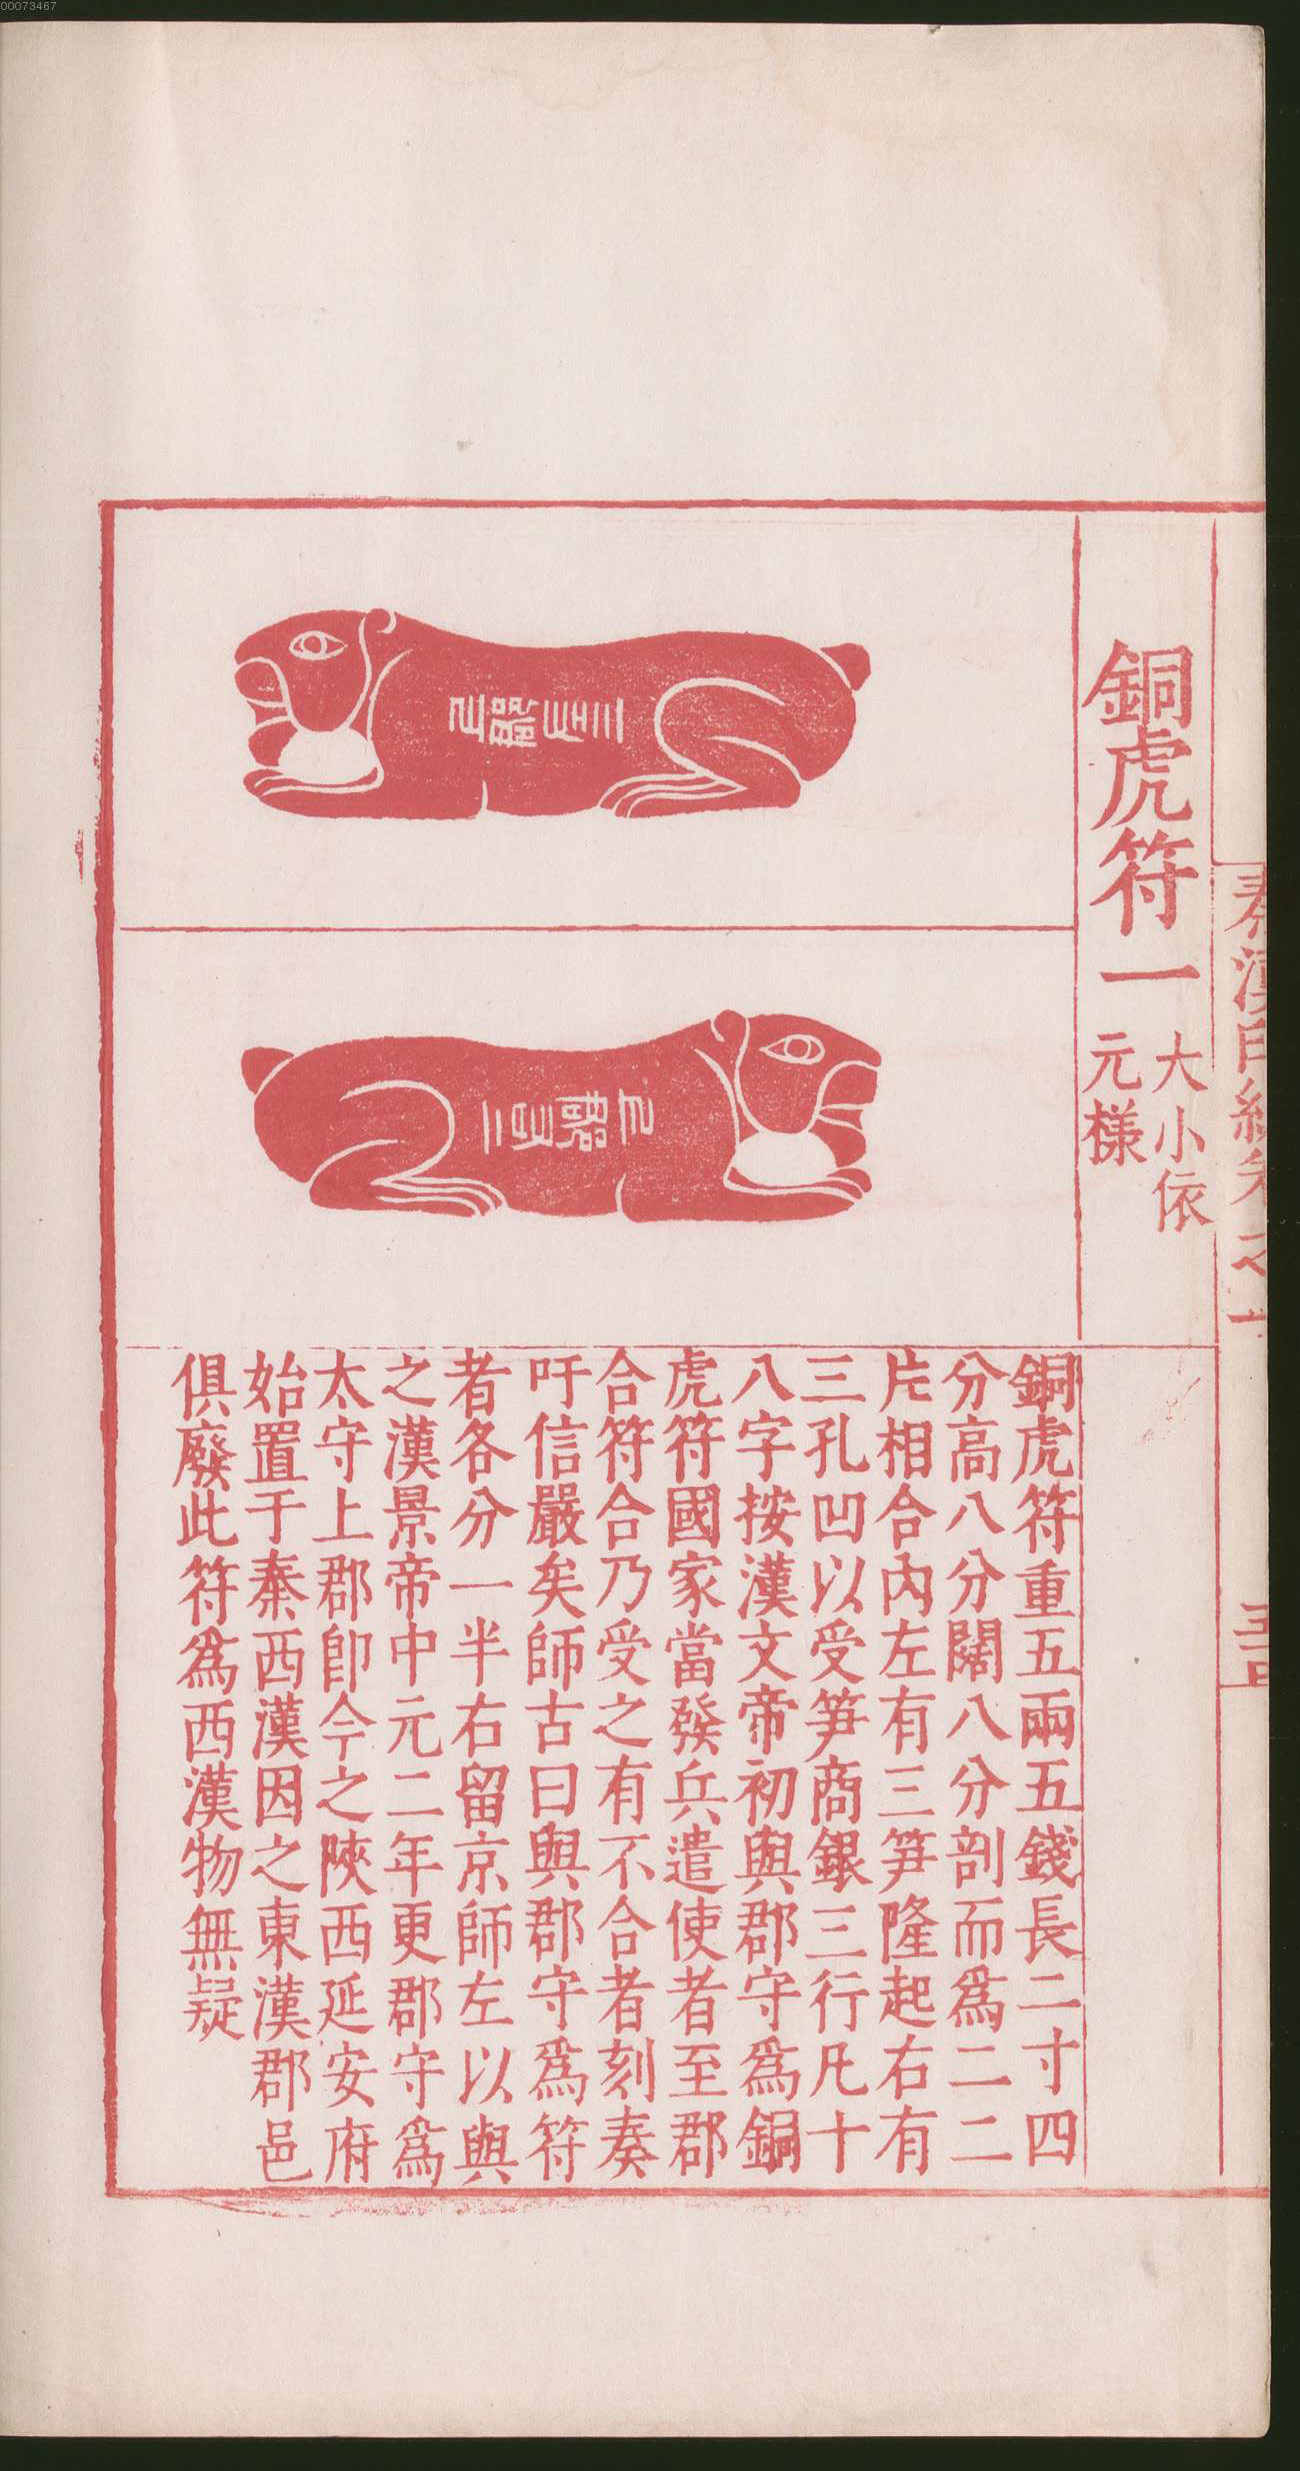 00073467
銅虎符一
大小依
元樣
銅虎符重五兩五錢長二寸四
分高八分闊八分剖而爲二二
片相合內左有三笋隆起右有
三孔凹以受笋商銀三行凡十
八字按漢文帝初與郡守爲銅
虎符國家當發兵遣使者至郡
合符合乃受之有不合者刻奏
吁信嚴矣師古曰與郡守爲符
者各分一半右留京師左以與
之漢景帝中元二年更郡守爲
太守上郡卽今之陝西延安府
始置于秦西漢因之東漢郡邑
俱廢此符爲西漢物無疑